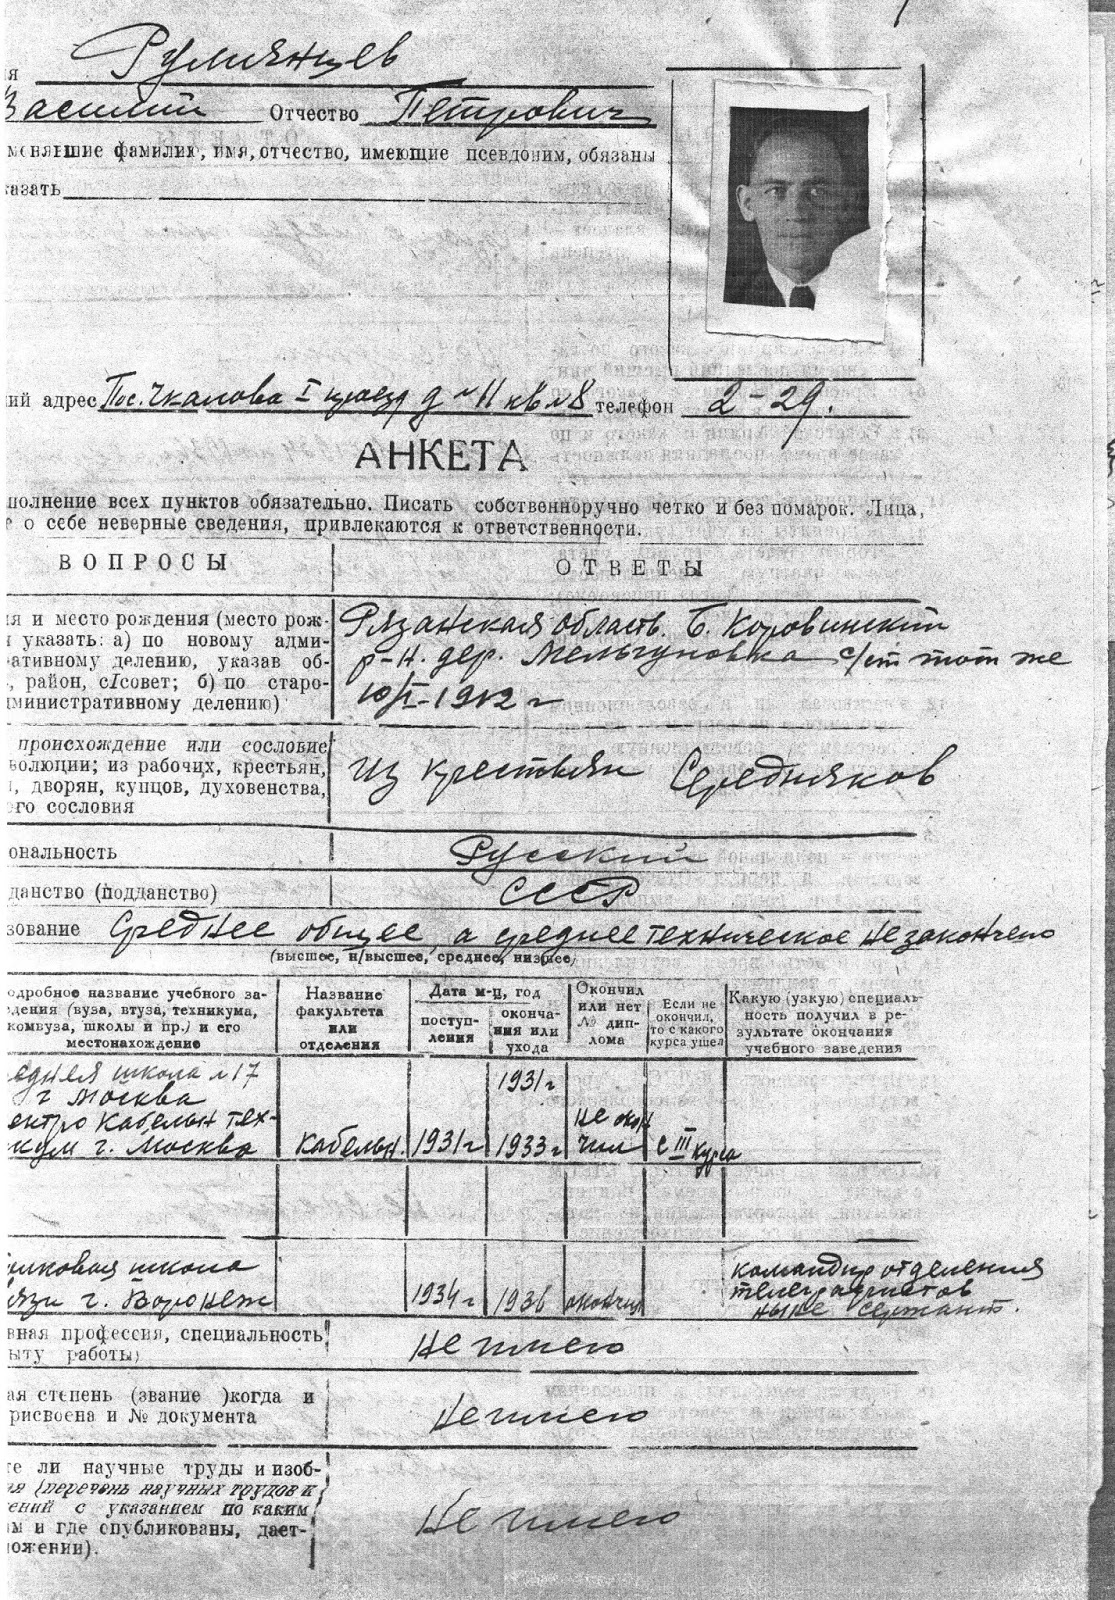 я Румянцев
Василий Отчество Петрович
менявшие фамилию, имя, отчество, имеющие псевдоним, обязаны
казать
ий адрес Пос. Чкалова I проезд д № 11 кв № 8 телефон 2-29.
АНКЕТА
полнение всех пунктов обязательно. Писать собственноручно четко и без помарок. Лица,
е о себе неверные сведения, привлекаются к ответственности.
ВОПРОСЫ ОТВЕТЫ
ия и место рождения (место рож-
я указать: а) по новому адми-
ративному делению, указав об-
, район, с/совет; б) по старо-
дминистративному делению)
Рязанская область. Б. Коровинский
р-н. дер. Мельгуновка с/ст тот же
10/I-1912 г
происхождение или сословие
волюции; из рабочих, крестьян,
, дворян, купцов, духовенства,
ого сословия
Из крестьян Середняков
ональность Русский
данство (подданство) СССР
зование Среднее общее, а среднее техническое не закончено
(высшее, н/высшее, среднее, низшее)
одробное название учебного за-
дения (вуза, втуза, техникума,
комвуза, школы и пр.) и его
местонахождение
Название
факультета
или
отделения
Дата м-ц, год
поступ-
ления
оконча-
ния или
ухода
Окончил
или нет
№ дип-
лома
Если не
окончил,
то с какого
курса ушел
Какую (узкую) специаль-
ность получил в ре-
зультате окончания
учебного заведения
едняя школа № 17 1931 г
г Москва
ентро Кабельн тех-
кум г. Москва Кабельн. 1931 г 1933 г не окон
чил с III курса
олковая школа
язи г. Воронеж 1934 г 1936 окончил
командир отделения
телеграфистов
ныне сержант.
вная профессия, специальность
ыту работы) Не имею
ая степень (звание )когда и
рисвоена и № документа Не имею
те ли научные труды и изоб-
ия (перечень научных трудов и
ений с указанием по каким
ам и где опубликованы, дает-
ложении).
Не имею